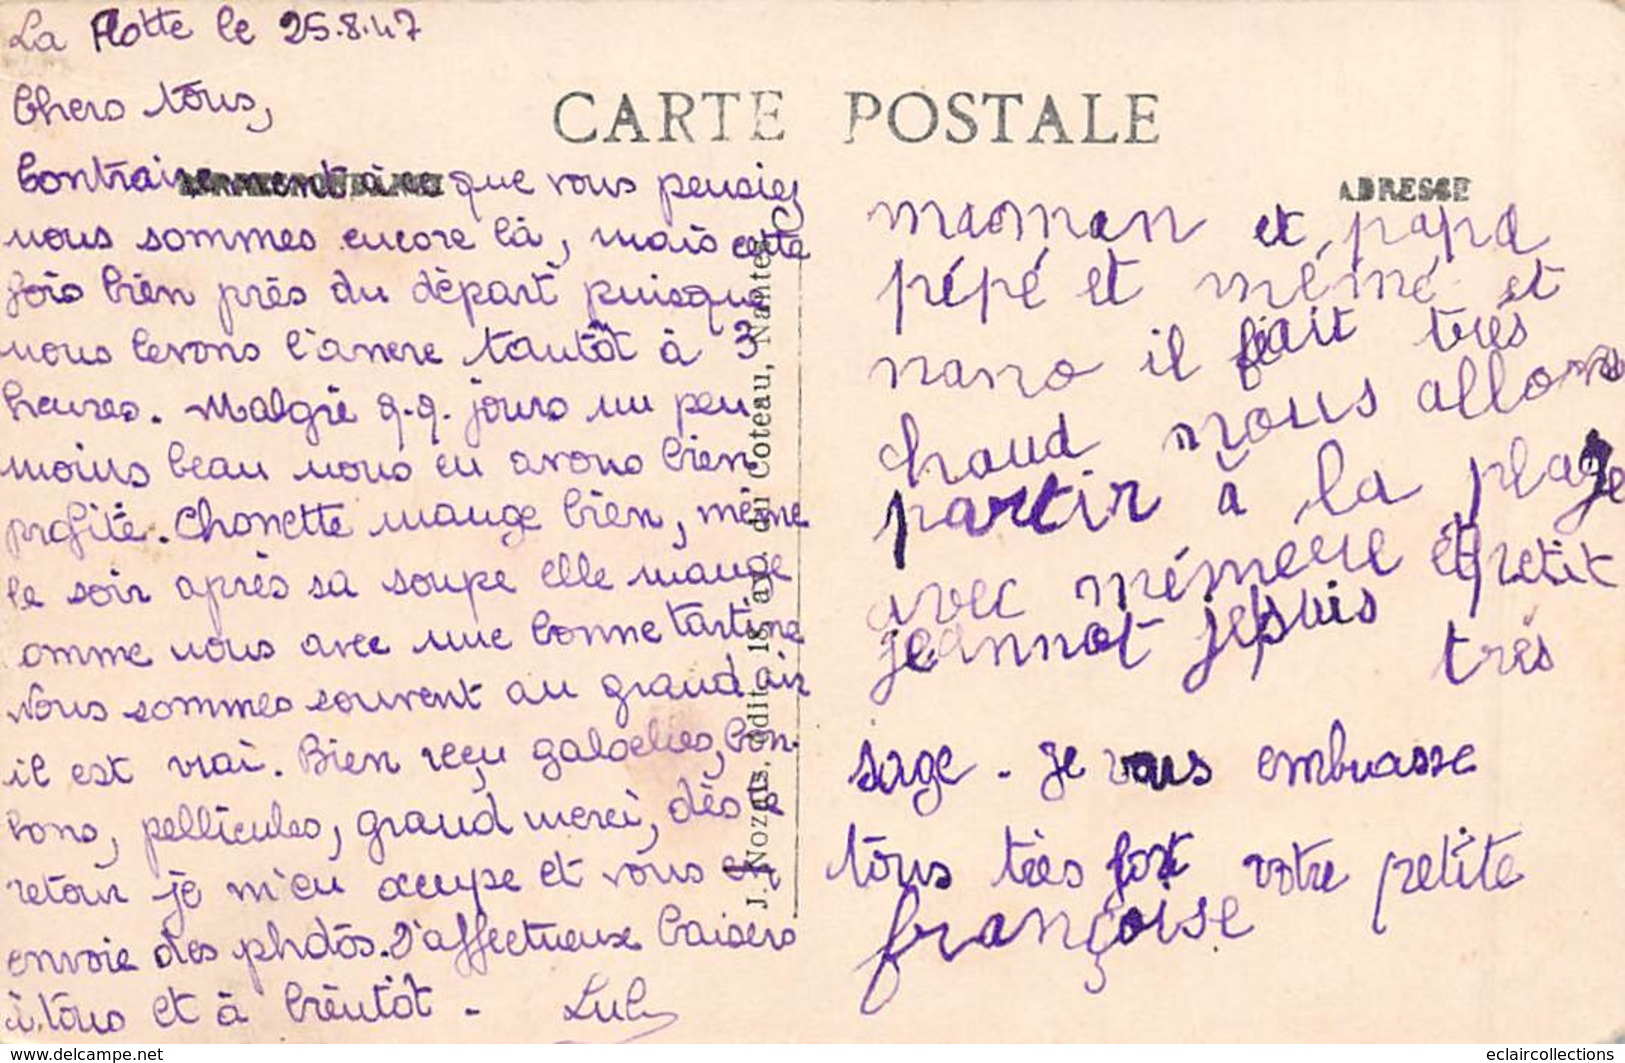 La Flotte le 25.8.47
Chers tous,
Contrairement à ce que vous pensiez
nous sommes encore là, mais cette
fois bien près du départ puisque
nous levons l'ancre tantôt à 3
heures. Malgré q.q. jours un peu
moins beau nous en avons bien
profité. Chonette mange bien, même
le soir après sa soupe elle mange
omme nous avec une bonne tartine
Nous sommes souvent au grand air
il est vrai. Bien reçu galoches, bon-
bons, pellicules, grand merci, dès le
retour je m'en occupe et vous
envoie des photos. D'affectueux baisers
à tous et à bientôt -
CARTE POSTALE
ADRESSE
J. Nozais, édit., 18, av. du Coteau, Nantes
maman et papa
pépé et mémé et
nano il fait très
chaud nous allons
partir à la plage
avec mémère et petit
jeannot je suis très
sage - je vous embrasse
tous très fort votre petite
françoise
eclaircollections
www.delcampe.net